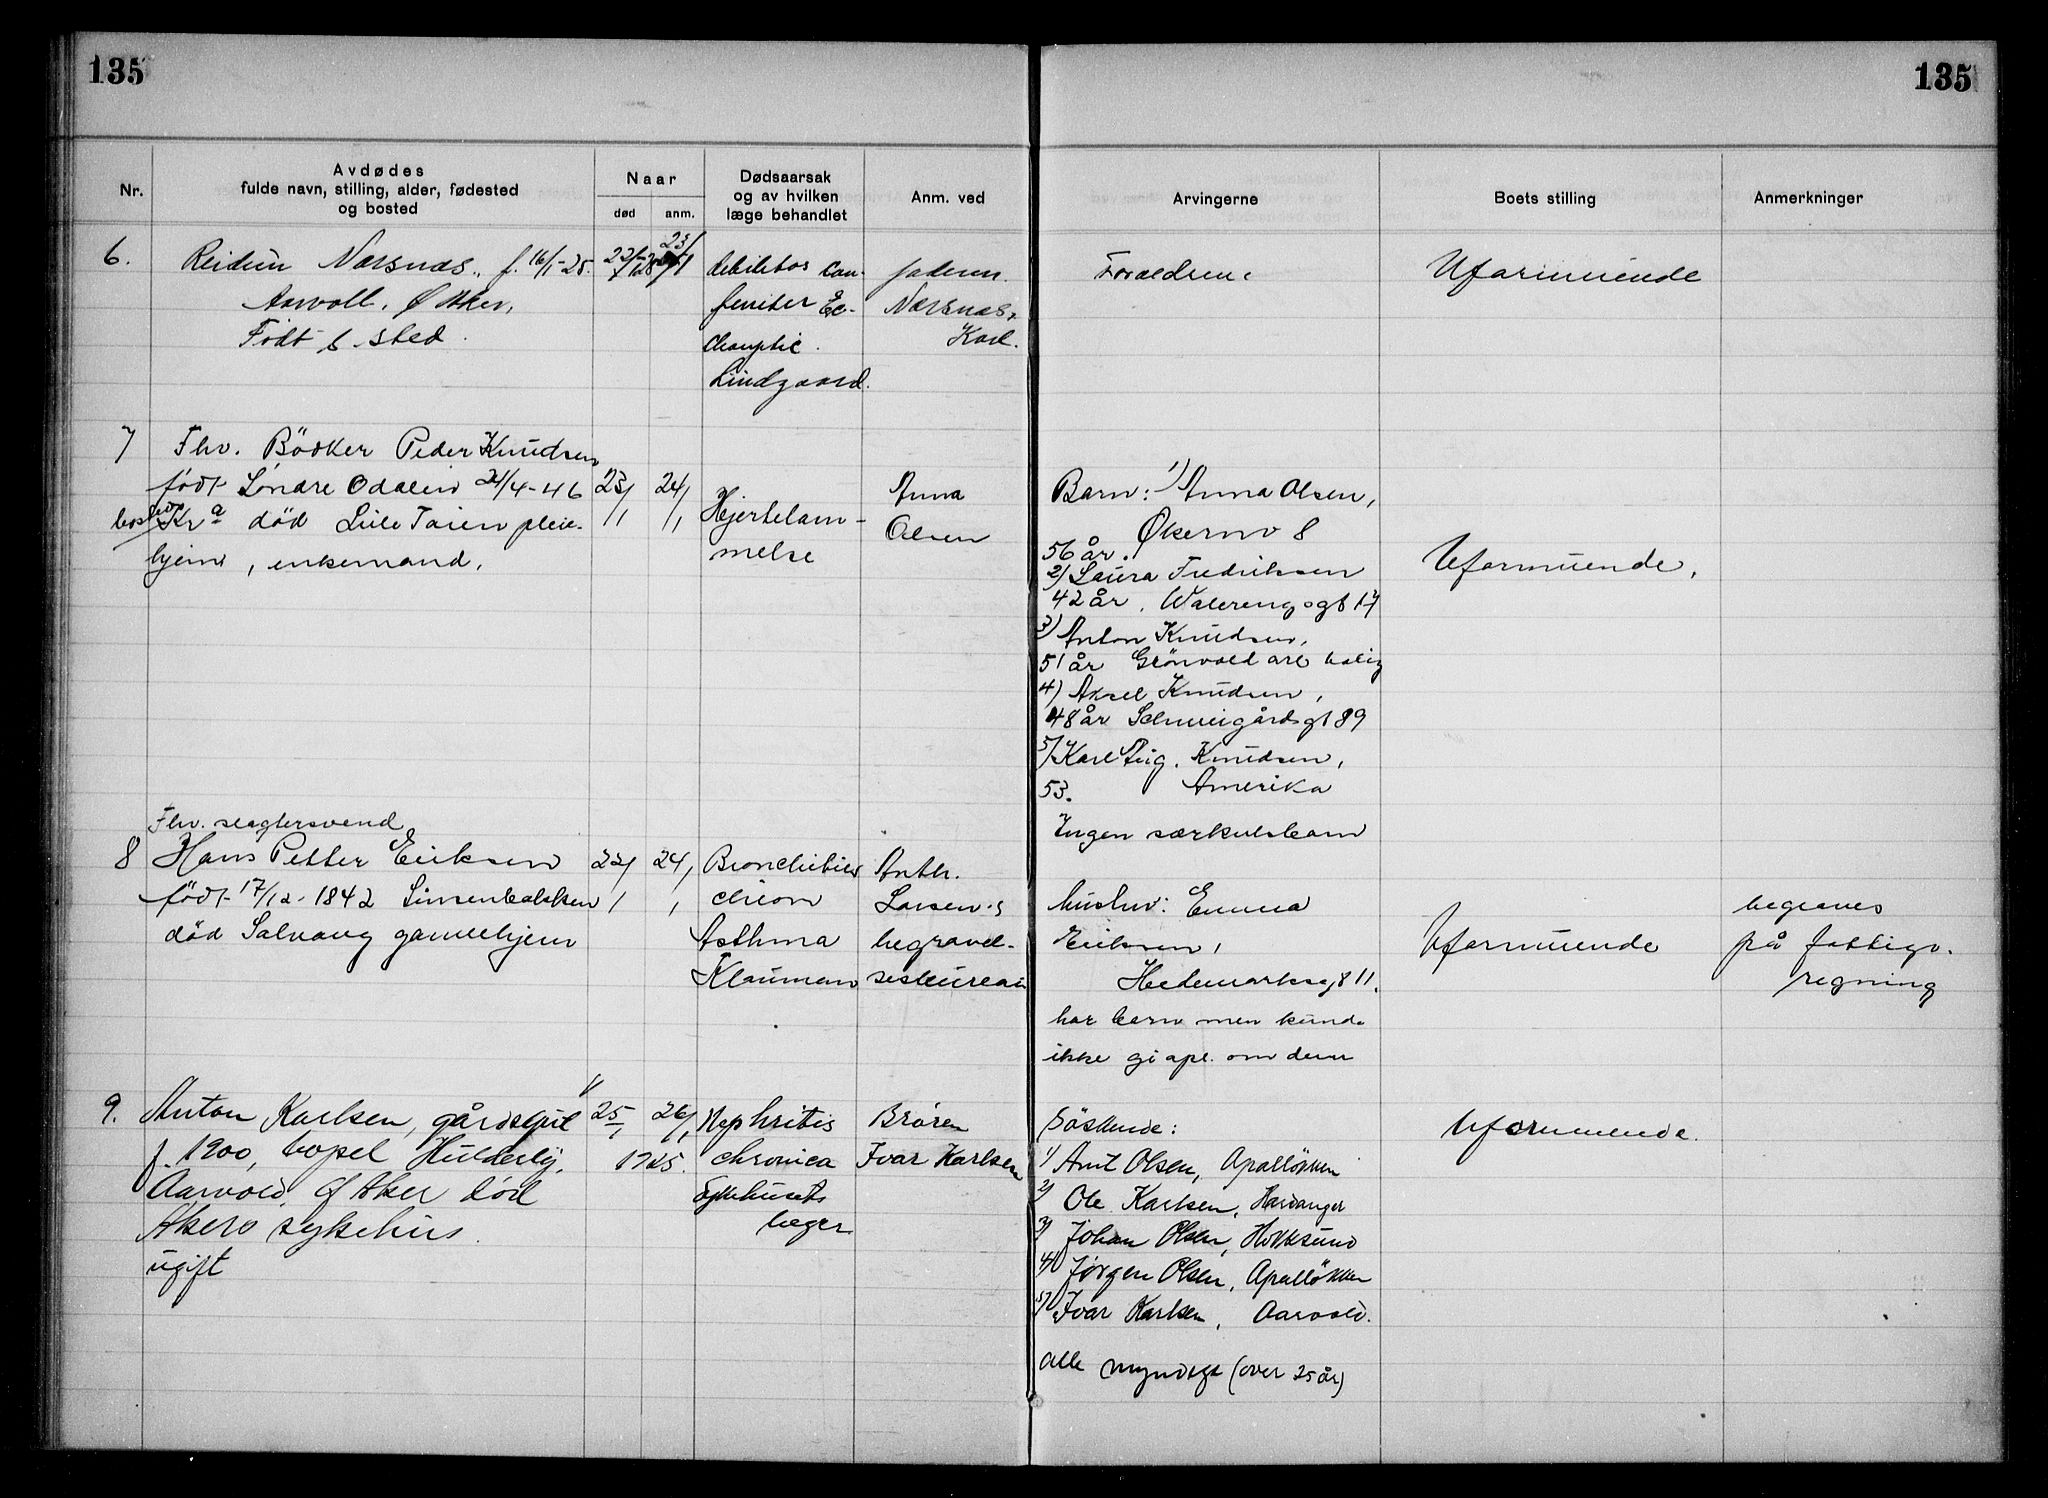 135
135
Nr.
Avdødes
fulde navn, stilling, alder, fødested
og bosted
Naar
død
anm.
Dødsaarsak
og av hvilken
læge behandlet
Anm. ved
Arvingerne
Boets stilling
Anmerkninger
6.
Reidun Nærsnæs, f. 16/1-25.
Aarvoll, Ø Aker,
Født s. sted.
23/1
debilitas con-
Lindgaard.
faderen
Nærsnæs,
Karl.
Forældrene
Uformuende
7
Fhv. Bödker Peder Knudsen
født Söndre Odalen 21/4-46
bosted Kra død Lille Tøien pleie-
hjem, enkemand.
23/1
24/1
Hjertelam-
melse
Anna
Olsen
Barn: 1) Anna Olsen,
Økernv 8
56 år.
2) Laura Fredriksen
42 år. Walerenggt 17
3) Anton Knudsen,
51 år Grönvold arb bolig
4) Aksel Knudsen,
48 år Schweigårdsgt 89
5) Karl Aug. Knudsen,
53. Amerika
Ingen særkulsbarn
Uformuende.
Fhv. slagtersvend
8 Hans Petter Eriksen
født 17/12-1842
død Solvang gamlehjem
22/1
24/1
Bronchitis
chron
Asthma
Klaumann
Anth.
Larsen's
begravel-
sesbureau
hustru: Emma
Eriksen,
Hedemarksgt 11.
har barn men kunde
ikke gi opl. om dem
Uformuende
begraves
på fattigv.
regning
9. Anton Karlsen, gårdsgut
f. 1900, bopel Hulderly,
Aarvold, Ø Aker død
Akers sykehus.
ugift
25/1
26/1
1925.
Nephritis
chronica
Sykehusets
læger
Broren
Ivar Karlsen
Söskende:
1) Amt Olsen, Apalløkken
2) Ole Karlsen, Hardanger
3) Johan Olsen, Hokksund
4) Jørgen Olsen, Apalløkken
5) Ivar Karlsen, Aarvold.
alle myndige (over 25 år)
Uformuende.